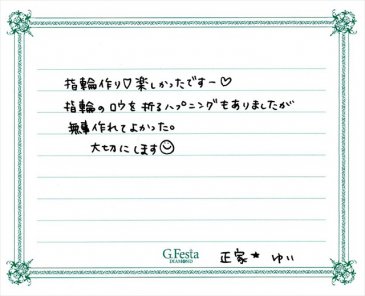 指輪作り♡楽しかったですー♡
指輪のロウを折るハプニングもありましたが
無事作れてよかった。
大切にします☺
G.Festa
DIAMOND
正家★ ゆい